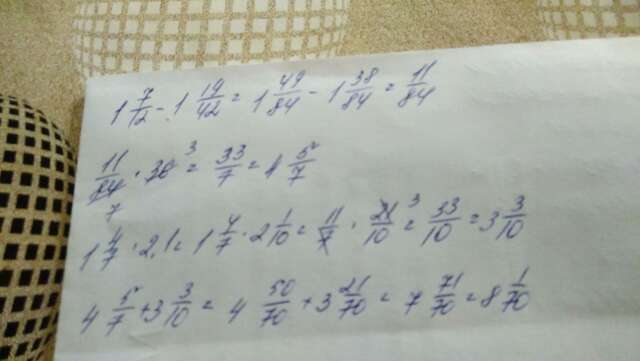 1 7/12 - 1 19/42 = 1 49/84 - 1 38/84 = 11/84
11/84 · 36 3 = 33/7 = 4 5/7 7
1 4/7 · 2,1 = 1 4/7 · 2 1/10 = 11/7 · 21/10 3 = 33/10 = 3 3/10
4 5/7 + 3 3/10 = 4 50/70 + 3 21/70 = 7 71/70 = 8 1/70